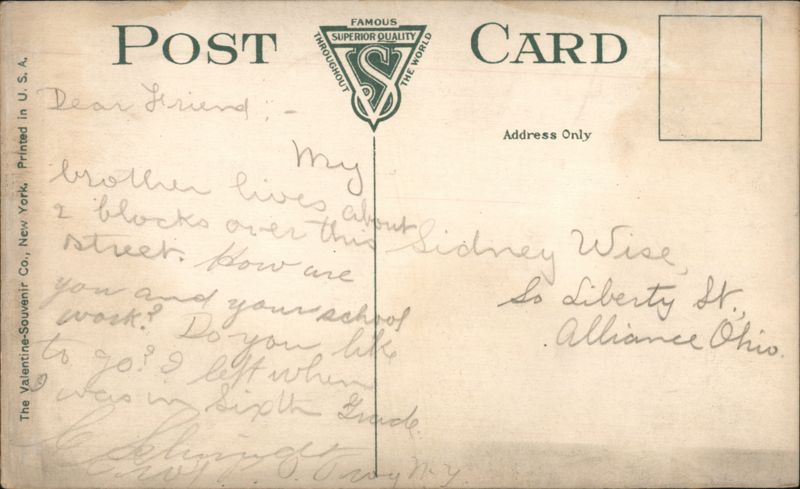 POST CARD
FAMOUS
SUPERIOR QUALITY
THROUGHOUT
THE WORLD
VS
Address Only
The Valentine-Souvenir Co., New York. Printed in U. S. A.
Dear Friend;-
My
brother lives about
2 blocks over this
street. How are
you and your school
work? Do you like
to go? I left when
I was in Sixth Grade.
C Schmidt
Troy N-Y.
Sidney Wise,
So Liberty St.,
Alliance Ohio.